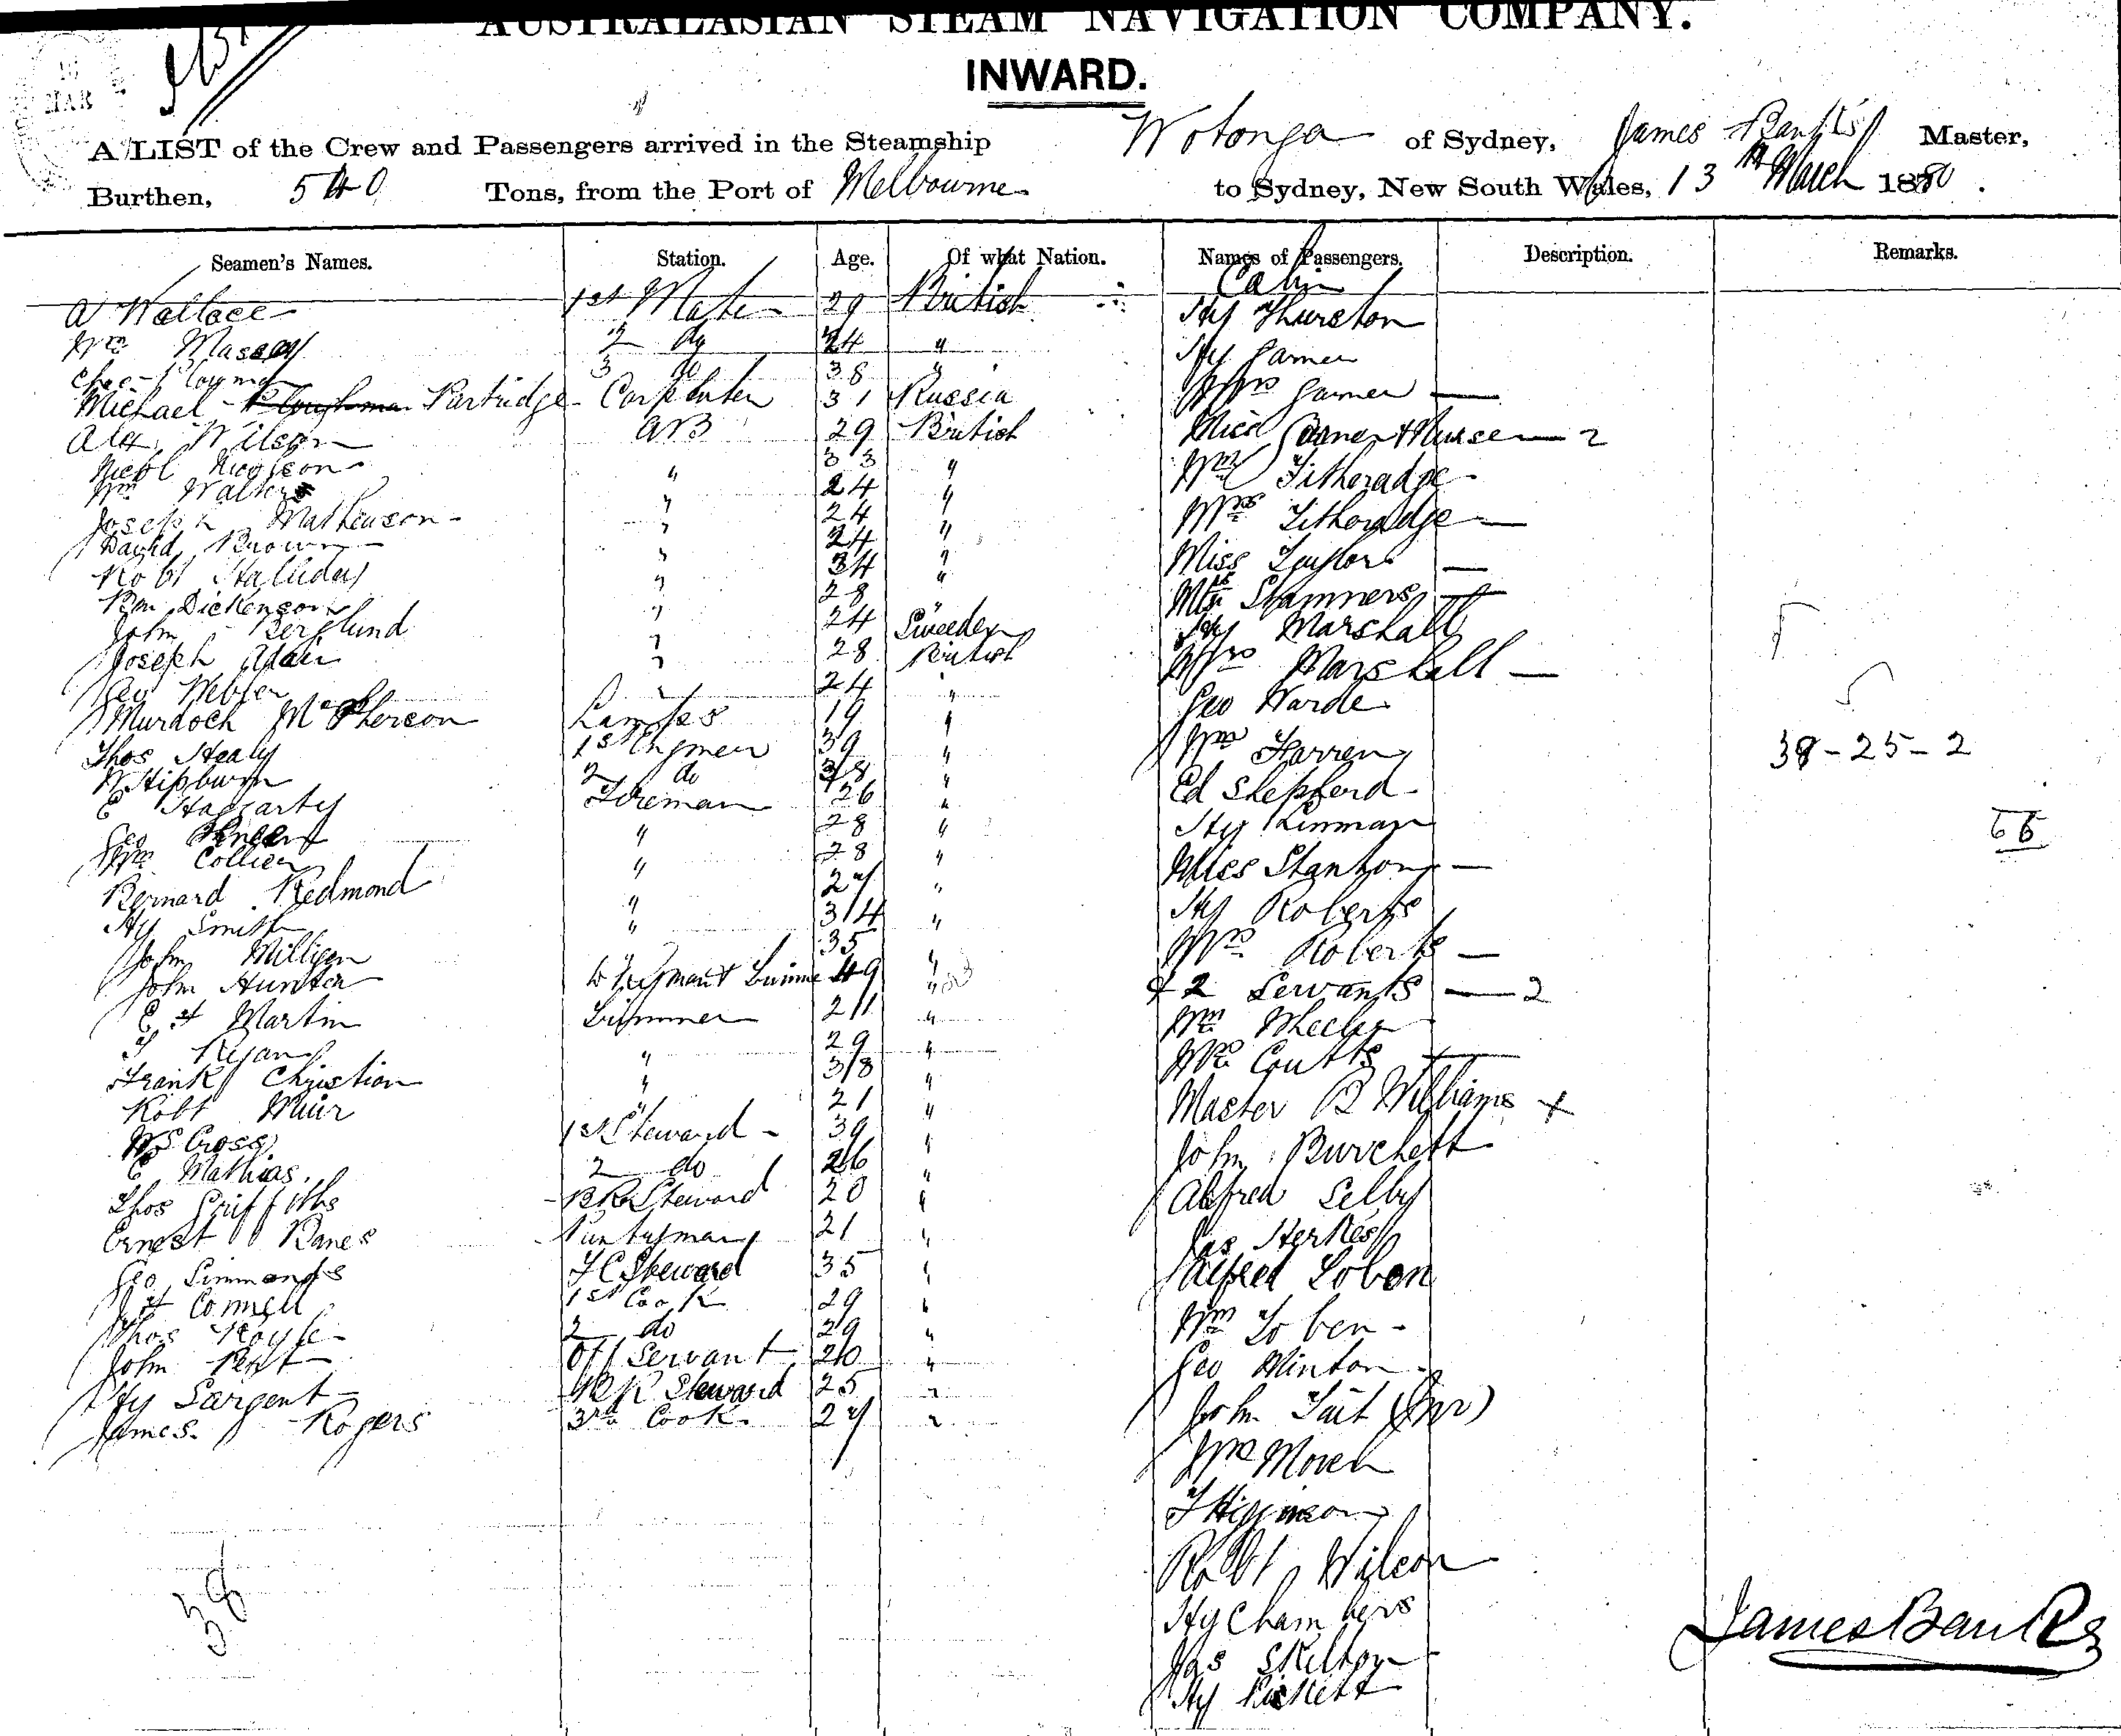 AUSTRALASIAN STEAM NAVIGATION COMPANY.
INWARD.
MAR
A LIST of the Crew and Passengers arrived in the Steamship Wotonga of Sydney, James Banks Master,
Burthen, 540 Tons, from the Port of Melbourne to Sydney, New South Wales, 13th March 1880.
Seamen's Names. Station. Age. Of what Nation. Names of Passengers. Description. Remarks.
Cabin
A Wallace 1st Mate 29 British Hy Thurston
Wm Massey 2 do 24 " Hy Garner
3 do 38 " Mrs Garner —
Michael Partridge Carpenter 31 Russia
Alex Wilson AB 29 British Miss Garner & Nurse — 2
Nicol Nicolson " 33 " Wm Titheradge
Wm Walters " 24 " Mrs Titheradge —
Joseph Mathewson " 24 "
David Brown " 24 " Miss Taylor —
Robt Halliday " 34 "
Wm Dickenson " 28 Stammers —
John Berglund " 24 Sweeden Hy Marshall
Joseph Adair " 28 British Mrs Marshall —
Geo Webber " 24 " Geo Warde
Murdoch McPherson Lamps 19 "
Thos Healy 1st Engineer 39 " Wm Farren
W Hipburn 2 do " Ed Shepherd
E Haggarty Fireman 26 "
Geo " 28 " Hy Kinman
Wm Collier " 28 " Miss Stanton —
Bernard Redmond " 27 "
Hy Smith " 34 " Hy Roberts
John Milligan " 35 " Mrs Roberts —
John Hunter 49 " & 2 Servants — 2
E H Martin Trimmer 21 " Wm Wheeler
Ryan " 29 " Mrs Coutts —
Frank Christian " 38 "
Robt Muir " 21 " Master B Williams +
W S Cross 1st Steward 39 " John Burchett
E Mathias 2 do 26 "
Thos Griffiths B R Steward 20 " Alfred Selby
Ernest Banes Pantryman 21 " Jas Herkes
Geo Simmonds F C Steward 35 " Alfred Loben
Connell 1st Cook 29 "
Thos 2 do 29 " Wm Loben
John Kent Off Servant 20 " Geo Minton
Hy Sargent Steward 25 "
James Rogers 3rd Cook 27 " John Tait (Jnr)
38-25-2
T Higginson
Robt Wilson
Hy Chambers
Jas Skelton
Hy Pickett
38
James Banks